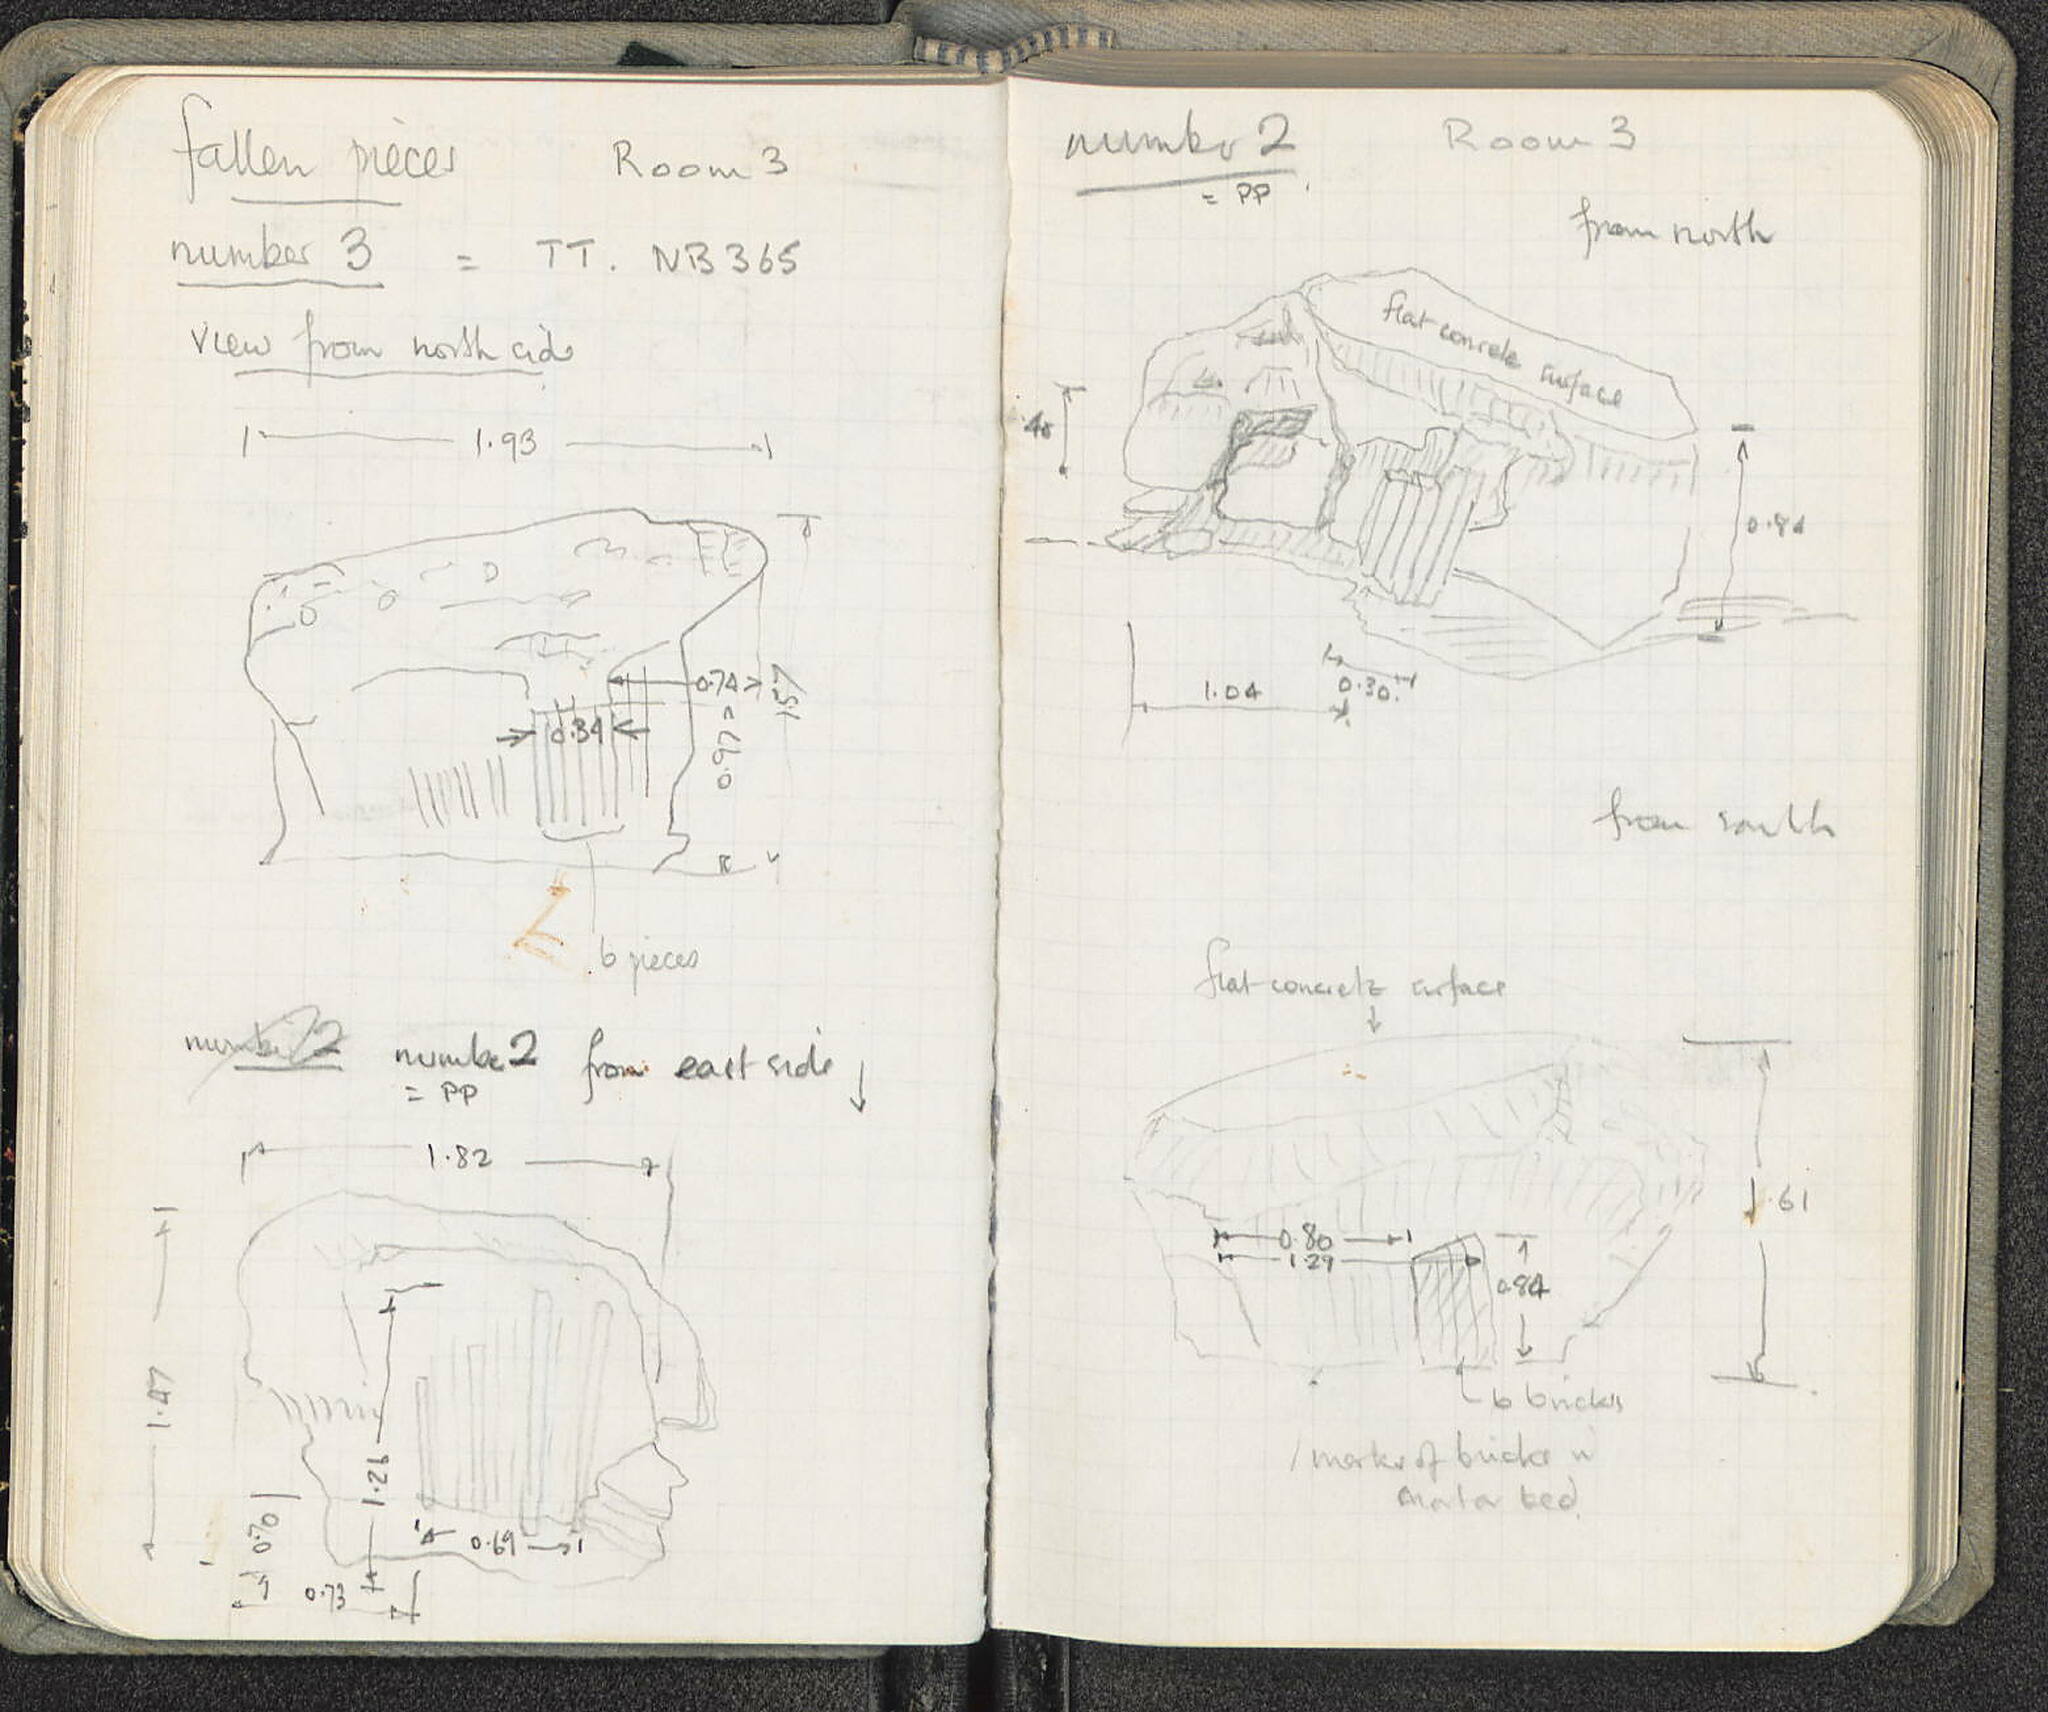 fallen pieces Room 3
number 3 = TT. NB 365
view from north side
1.93
0.74
1.57
0.34
0.97
6 pieces
number 2 number 2 from east side
= PP
1.82
1.47
1.26
0.70
0.69
0.73
number 2 Room 3
= PP
from north
flat concrete surface
.40
0.84
1.04
0.30
from south
flat concrete surface
1.61
0.80
1.29
0.84
6 bricks
marks of bricks in
mortar bed